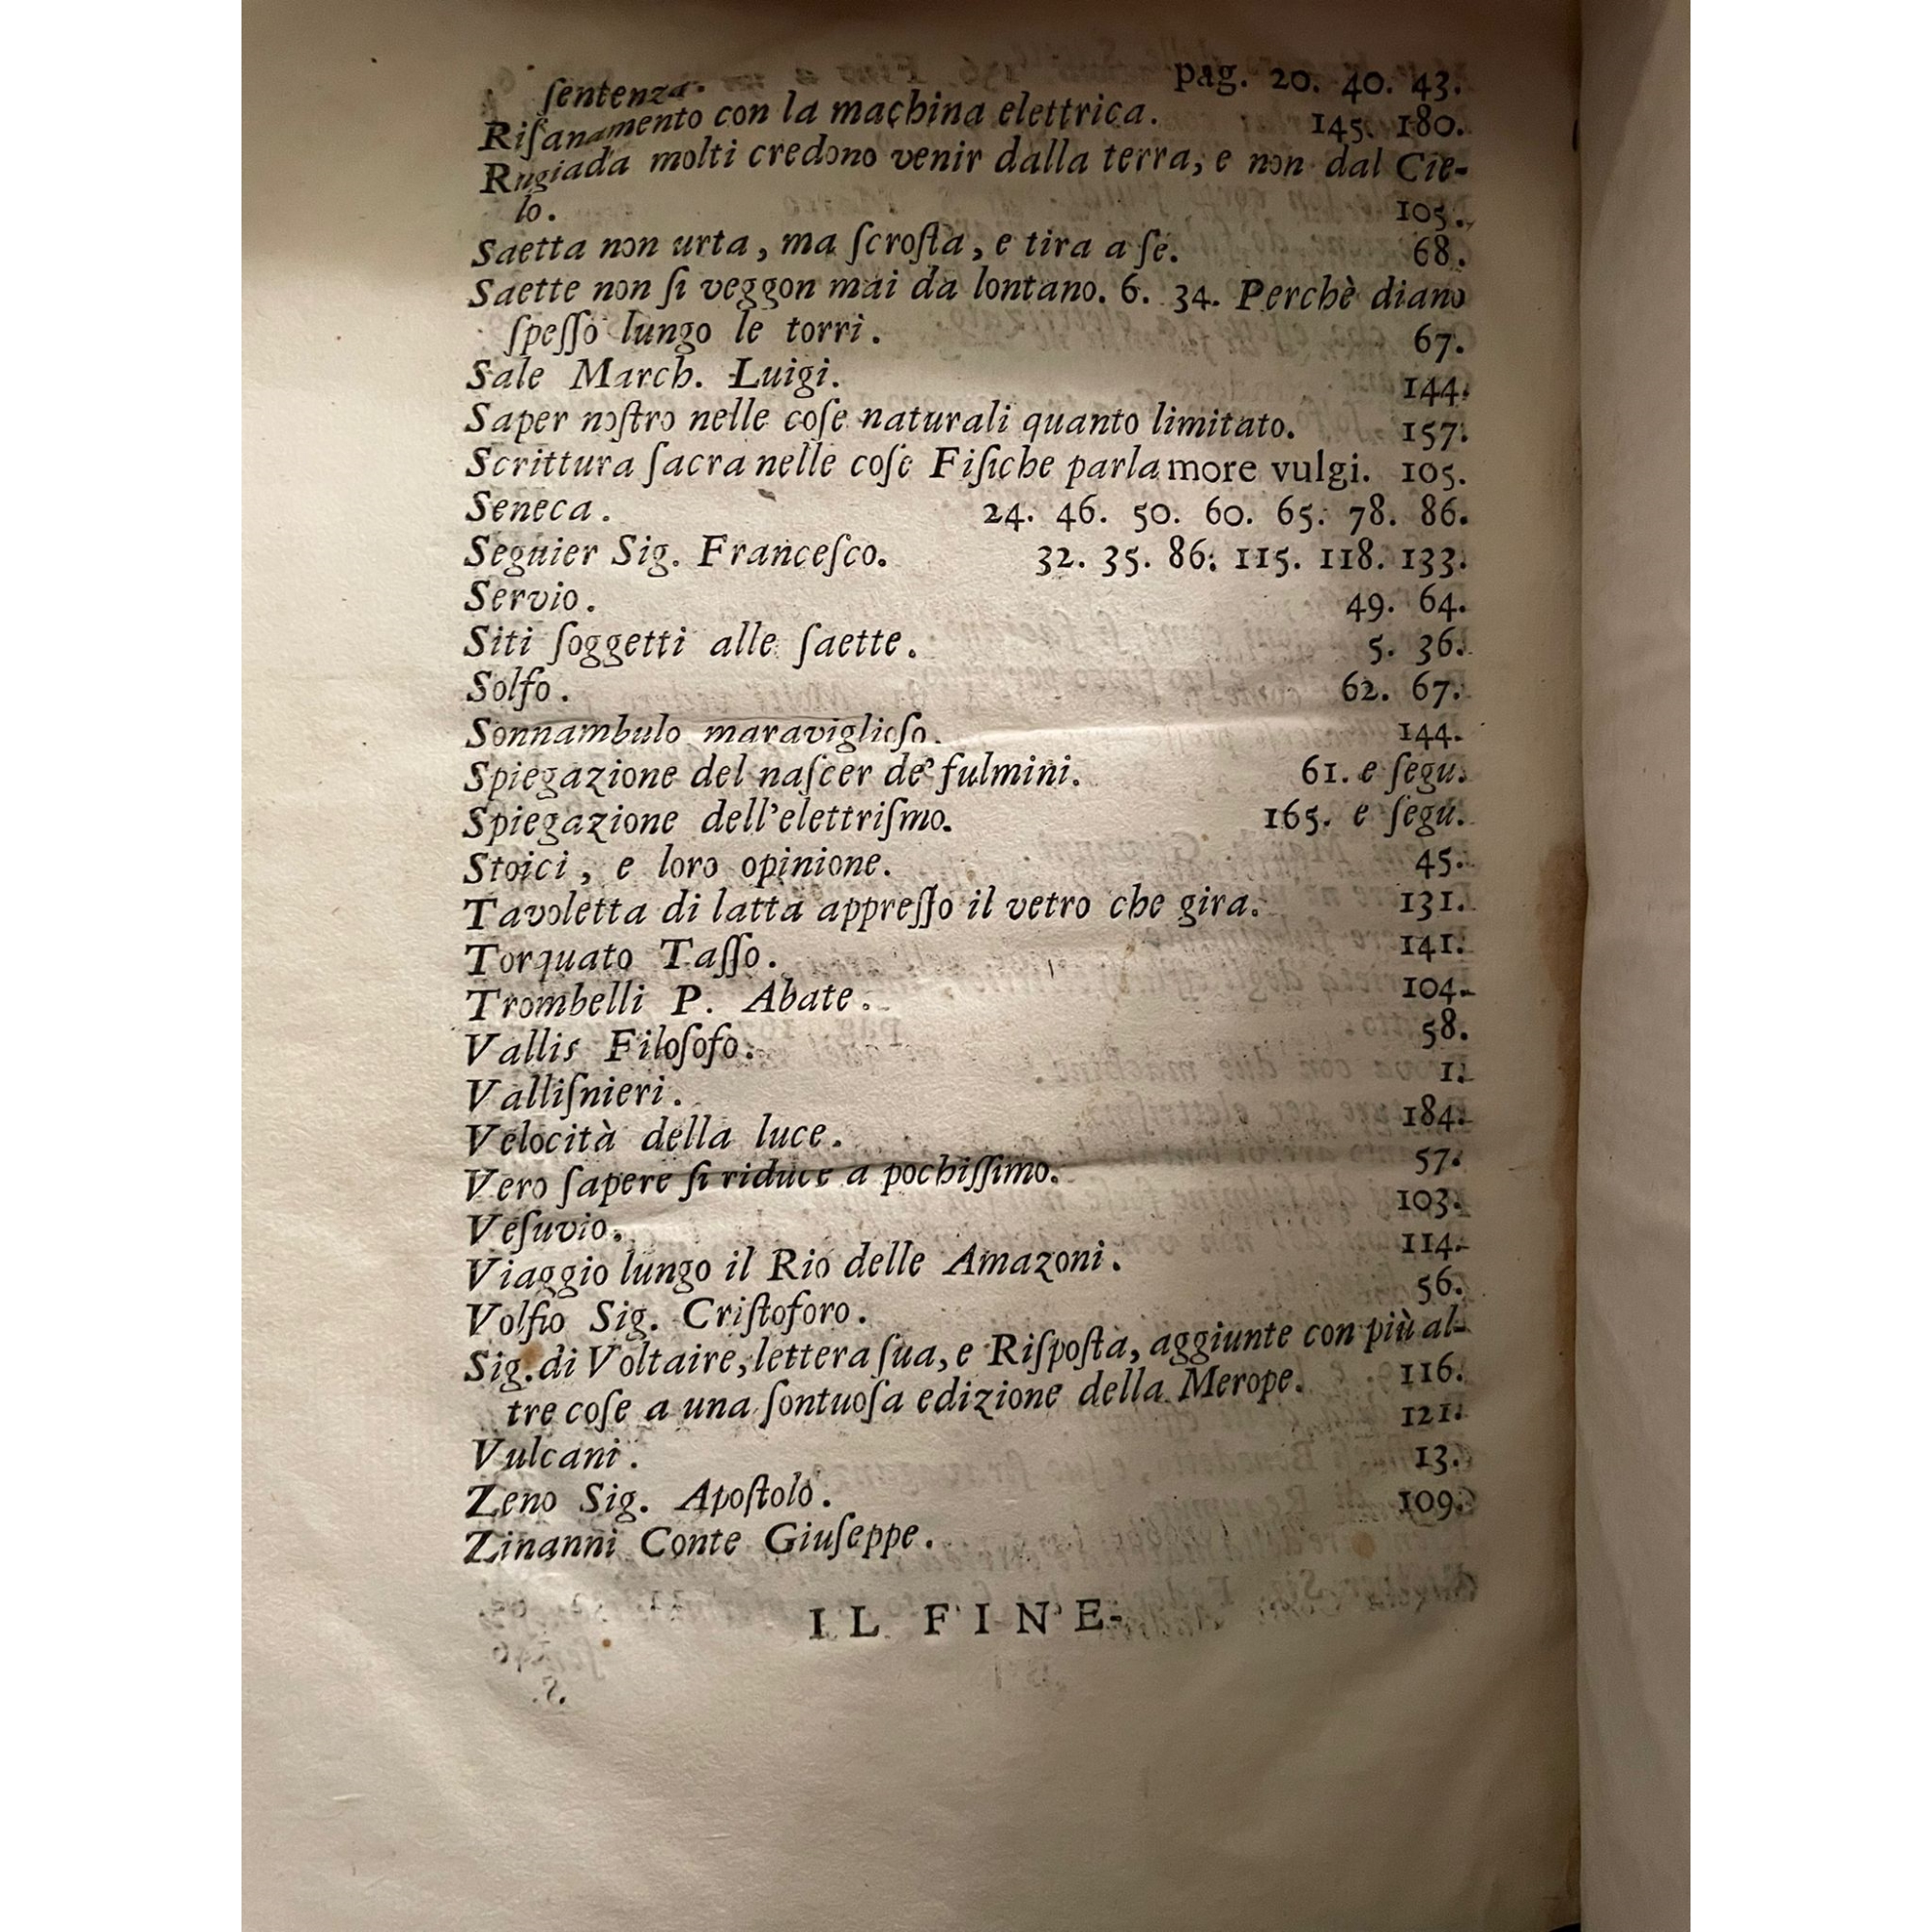 ſentenza. pag. 20. 40. 43.
Riſanamento con la machina elettrica. 145. 180.
Rugiada molti credono venir dalla terra, e non dal Cie-
lo. 105.
Saetta non urta, ma ſcroſta, e tira a ſe. 68.
Saette non ſi veggon mai da lontano. 6. 34. Perchè diano
ſpeſſo lungo le torri. 67.
Sale March. Luigi. 144.
Saper noſtro nelle coſe naturali quanto limitato. 157.
Scrittura ſacra nelle coſe Fiſiche parla more vulgi. 105.
Seneca. 24. 46. 50. 60. 65. 78. 86.
Seguier Sig. Franceſco. 32. 35. 86. 115. 118. 133.
Servio. 49. 64.
Siti ſoggetti alle ſaette. 5. 36.
Solfo. 62. 67.
Sonnambulo maraviglioſo. 144.
Spiegazione del naſcer de' fulmini. 61. e ſegu.
Spiegazione dell'elettriſmo. 165. e ſegu.
Stoici, e loro opinione. 45.
Tavoletta di latta appreſſo il vetro che gira. 131.
Torquato Taſſo. 141.
Trombelli P. Abate. 104.
Vallis Filoſofo. 58.
Valliſnieri. 1.
Velocità della luce. 184.
Vero ſapere ſi riduce a pochiſſimo. 57.
Veſuvio. 103.
Viaggio lungo il Rio delle Amazoni. 114.
Volfio Sig. Criſtoforo. 56.
Sig. di Voltaire, lettera ſua, e Riſpoſta, aggiunte con più al-
tre coſe a una ſontuoſa edizione della Merope. 116.
Vulcani. 121.
Zeno Sig. Apoſtolo. 13.
Zinanni Conte Giuſeppe. 109.
IL FINE.